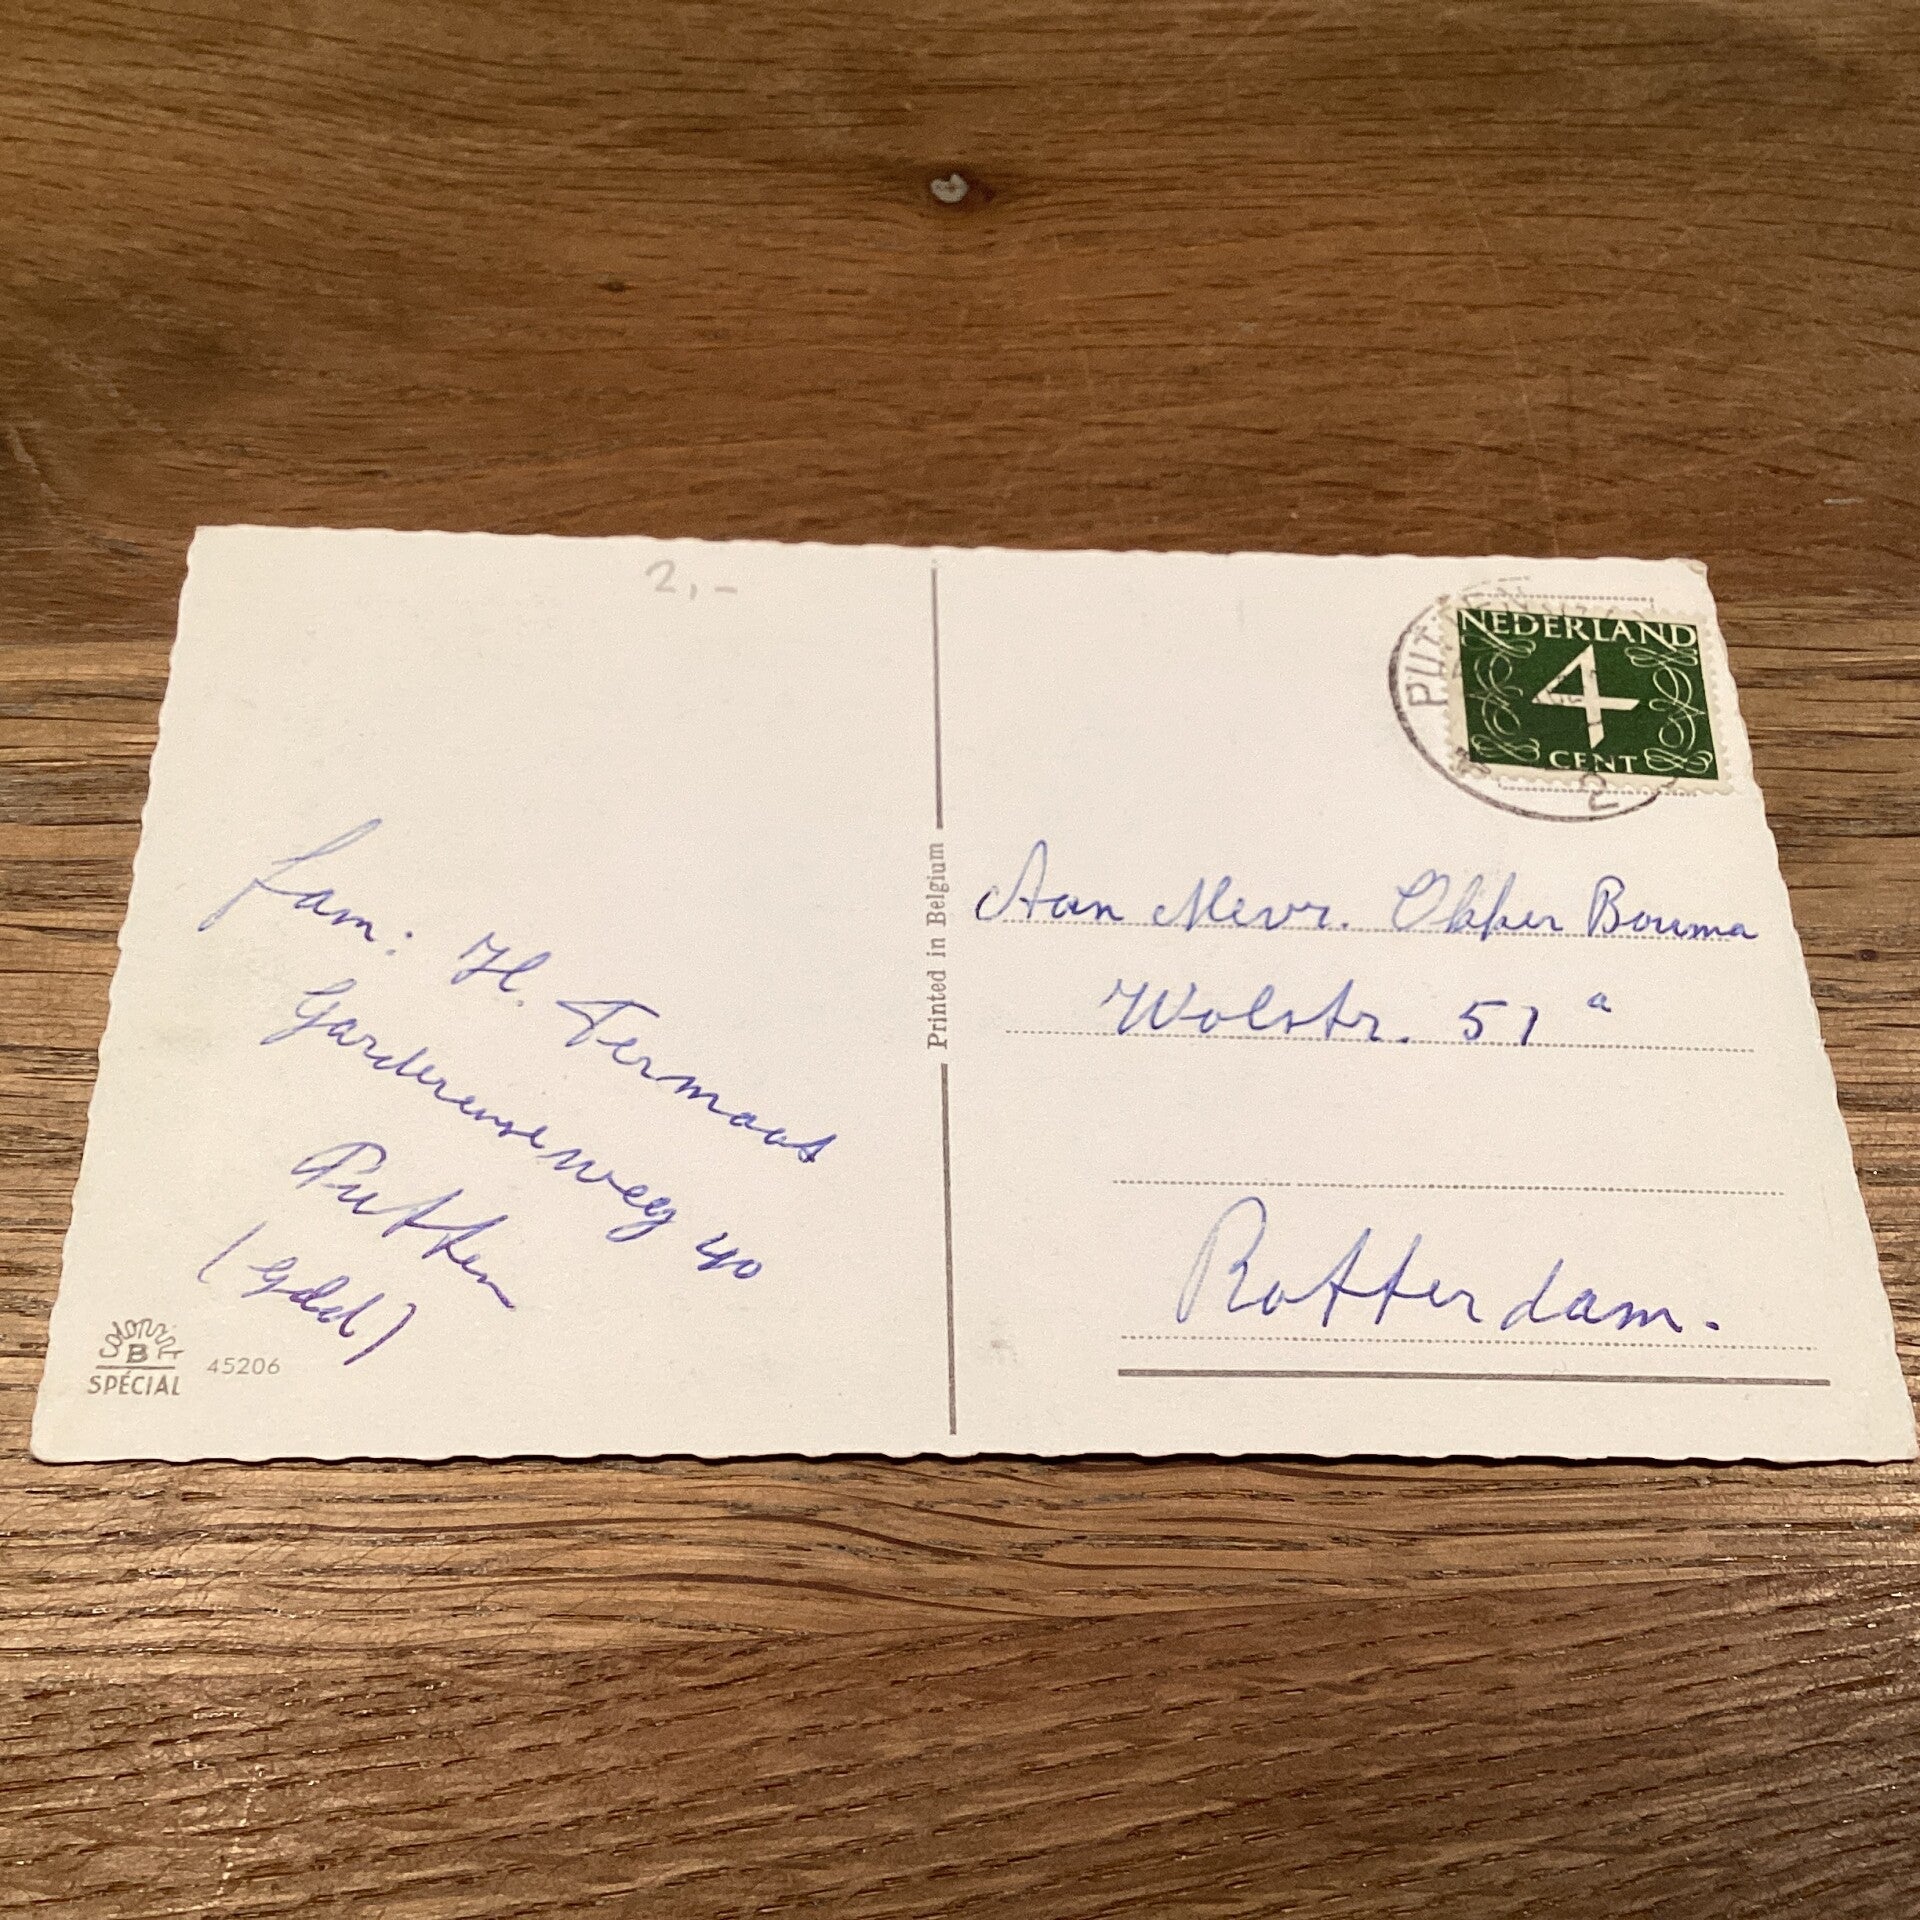 2,-
fam: H. Termaat
Garderenseweg 40
Putten
(Gdld)
B
SPÉCIAL
45206
Printed in Belgium
PUTTEN
NEDERLAND
4
CENT
Aan Mevr. Okker Bouma
Wolstr. 51 a
Rotterdam.